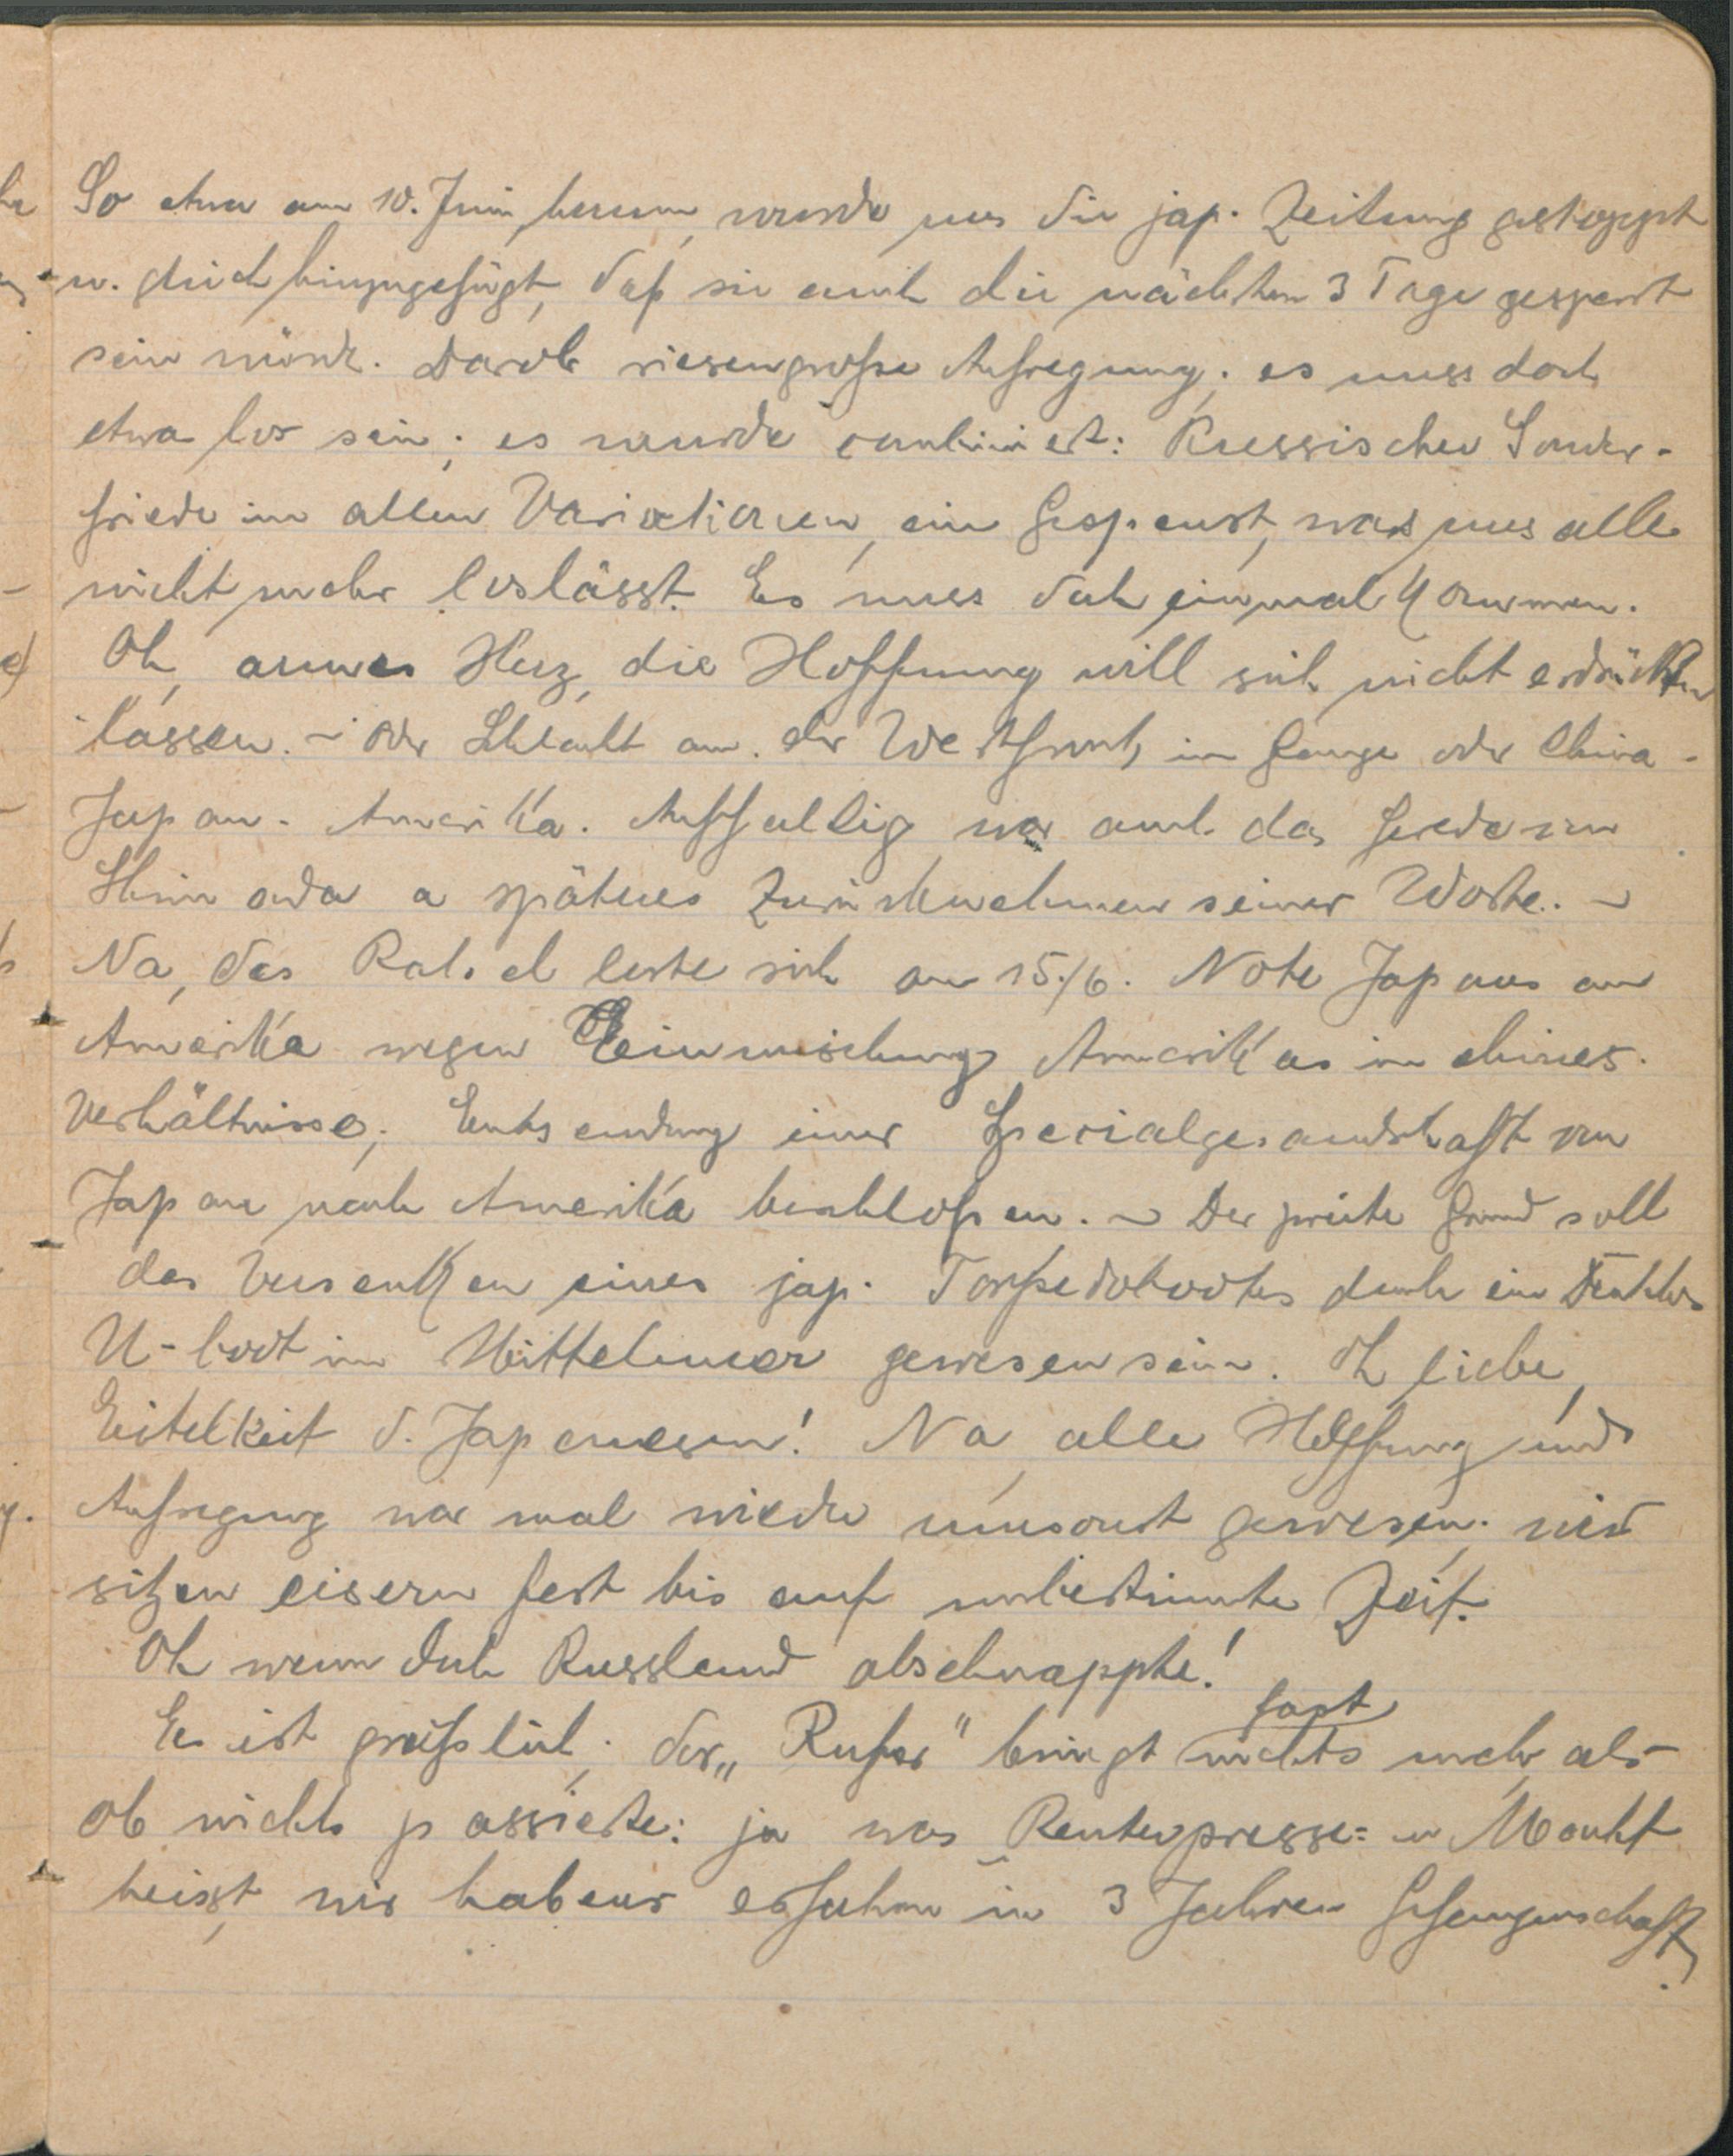 So etwa am 10. Juni herum, wurde uns die jap. Zeitung gestoppt
u. gleich hinzugefügt, daß sie auch die nächsten 3 Tage gesperrt
sein würde. Darob riesengroße Aufregung; es muss doch
etwa los sein; es wurde combiniert: Russischer Sonder-
friede in allen Variationen, ein Gespenst, was uns alle
nicht mehr loslässt. Es muss doch einmal kommen.
Oh, armes Herz, die Hoffnung will sich nicht erdrücken
lassen. - oder Schlacht an der Westfront, im Gange oder China -
Japan - Amerika. Auffallig war auch das Gerede von
u späteres Zurücknehmen seiner Worte. -
Na, das Ratsel löste sich am 15./6. Note Japans an
Amerika wegen Einmischung Amerikas in chines.
Verhältnisse; Entsendung einer Specialgesandschaft von
Japan nach Amerika beschloßen. - Der zweite Grund soll
das Versenken eines jap. Torpedobootes durch ein Deutsches
U-boot im Mittelmeer gewesen sein. Oh liebe,
Eitelkeit d. Japanesen! Na, alle Hoffnung und
Aufregung war mal wieder umsonst gewesen; wir
sitzen eisern fest bis auf unbestimmte Zeit.
Oh wenn doch Russland abschnappte!
Es ist gräßlich; der „Rufer" bringt fast nichts mehr, als
ob nichts passierte: ja was Reuterpresse = u Macht
heisst, wir habens erfahren in 3 Jahren Gefangenschaft.